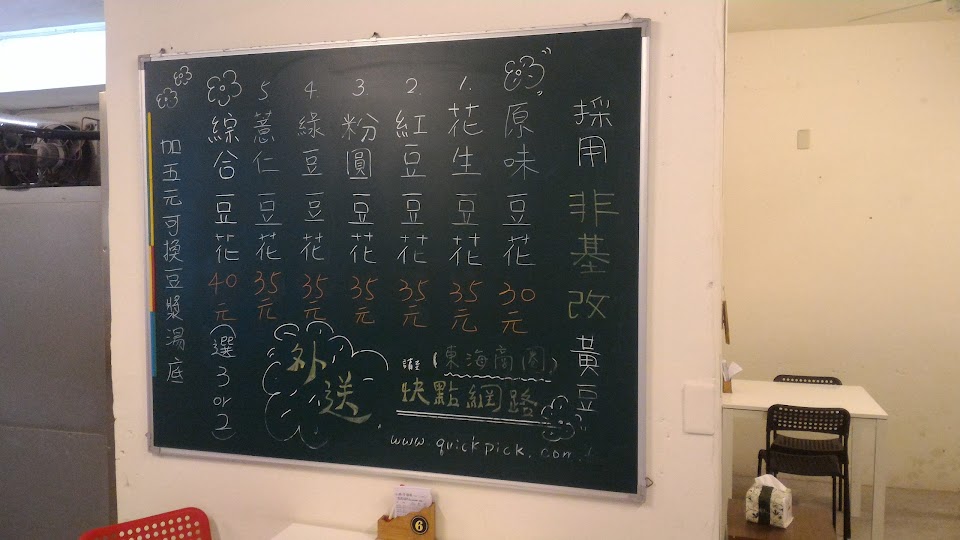 採用非基改黃豆
原味豆花30元
1.花生豆花35元
2.紅豆豆花35元
3.粉圓豆花35元
4.綠豆豆花35元
5.薏仁豆花35元
綜合豆花40元(選3或2)
加五元可換豆漿湯底
外送
請至(東海商圈)
快點網路
www.quickpick.com.
6